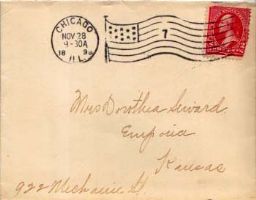 CHICAGO
NOV 28
9-30A
18 98
ILL.
7
2
Mrs Dorothea Siward
Emporia
Kansas
922 Mechanic St.